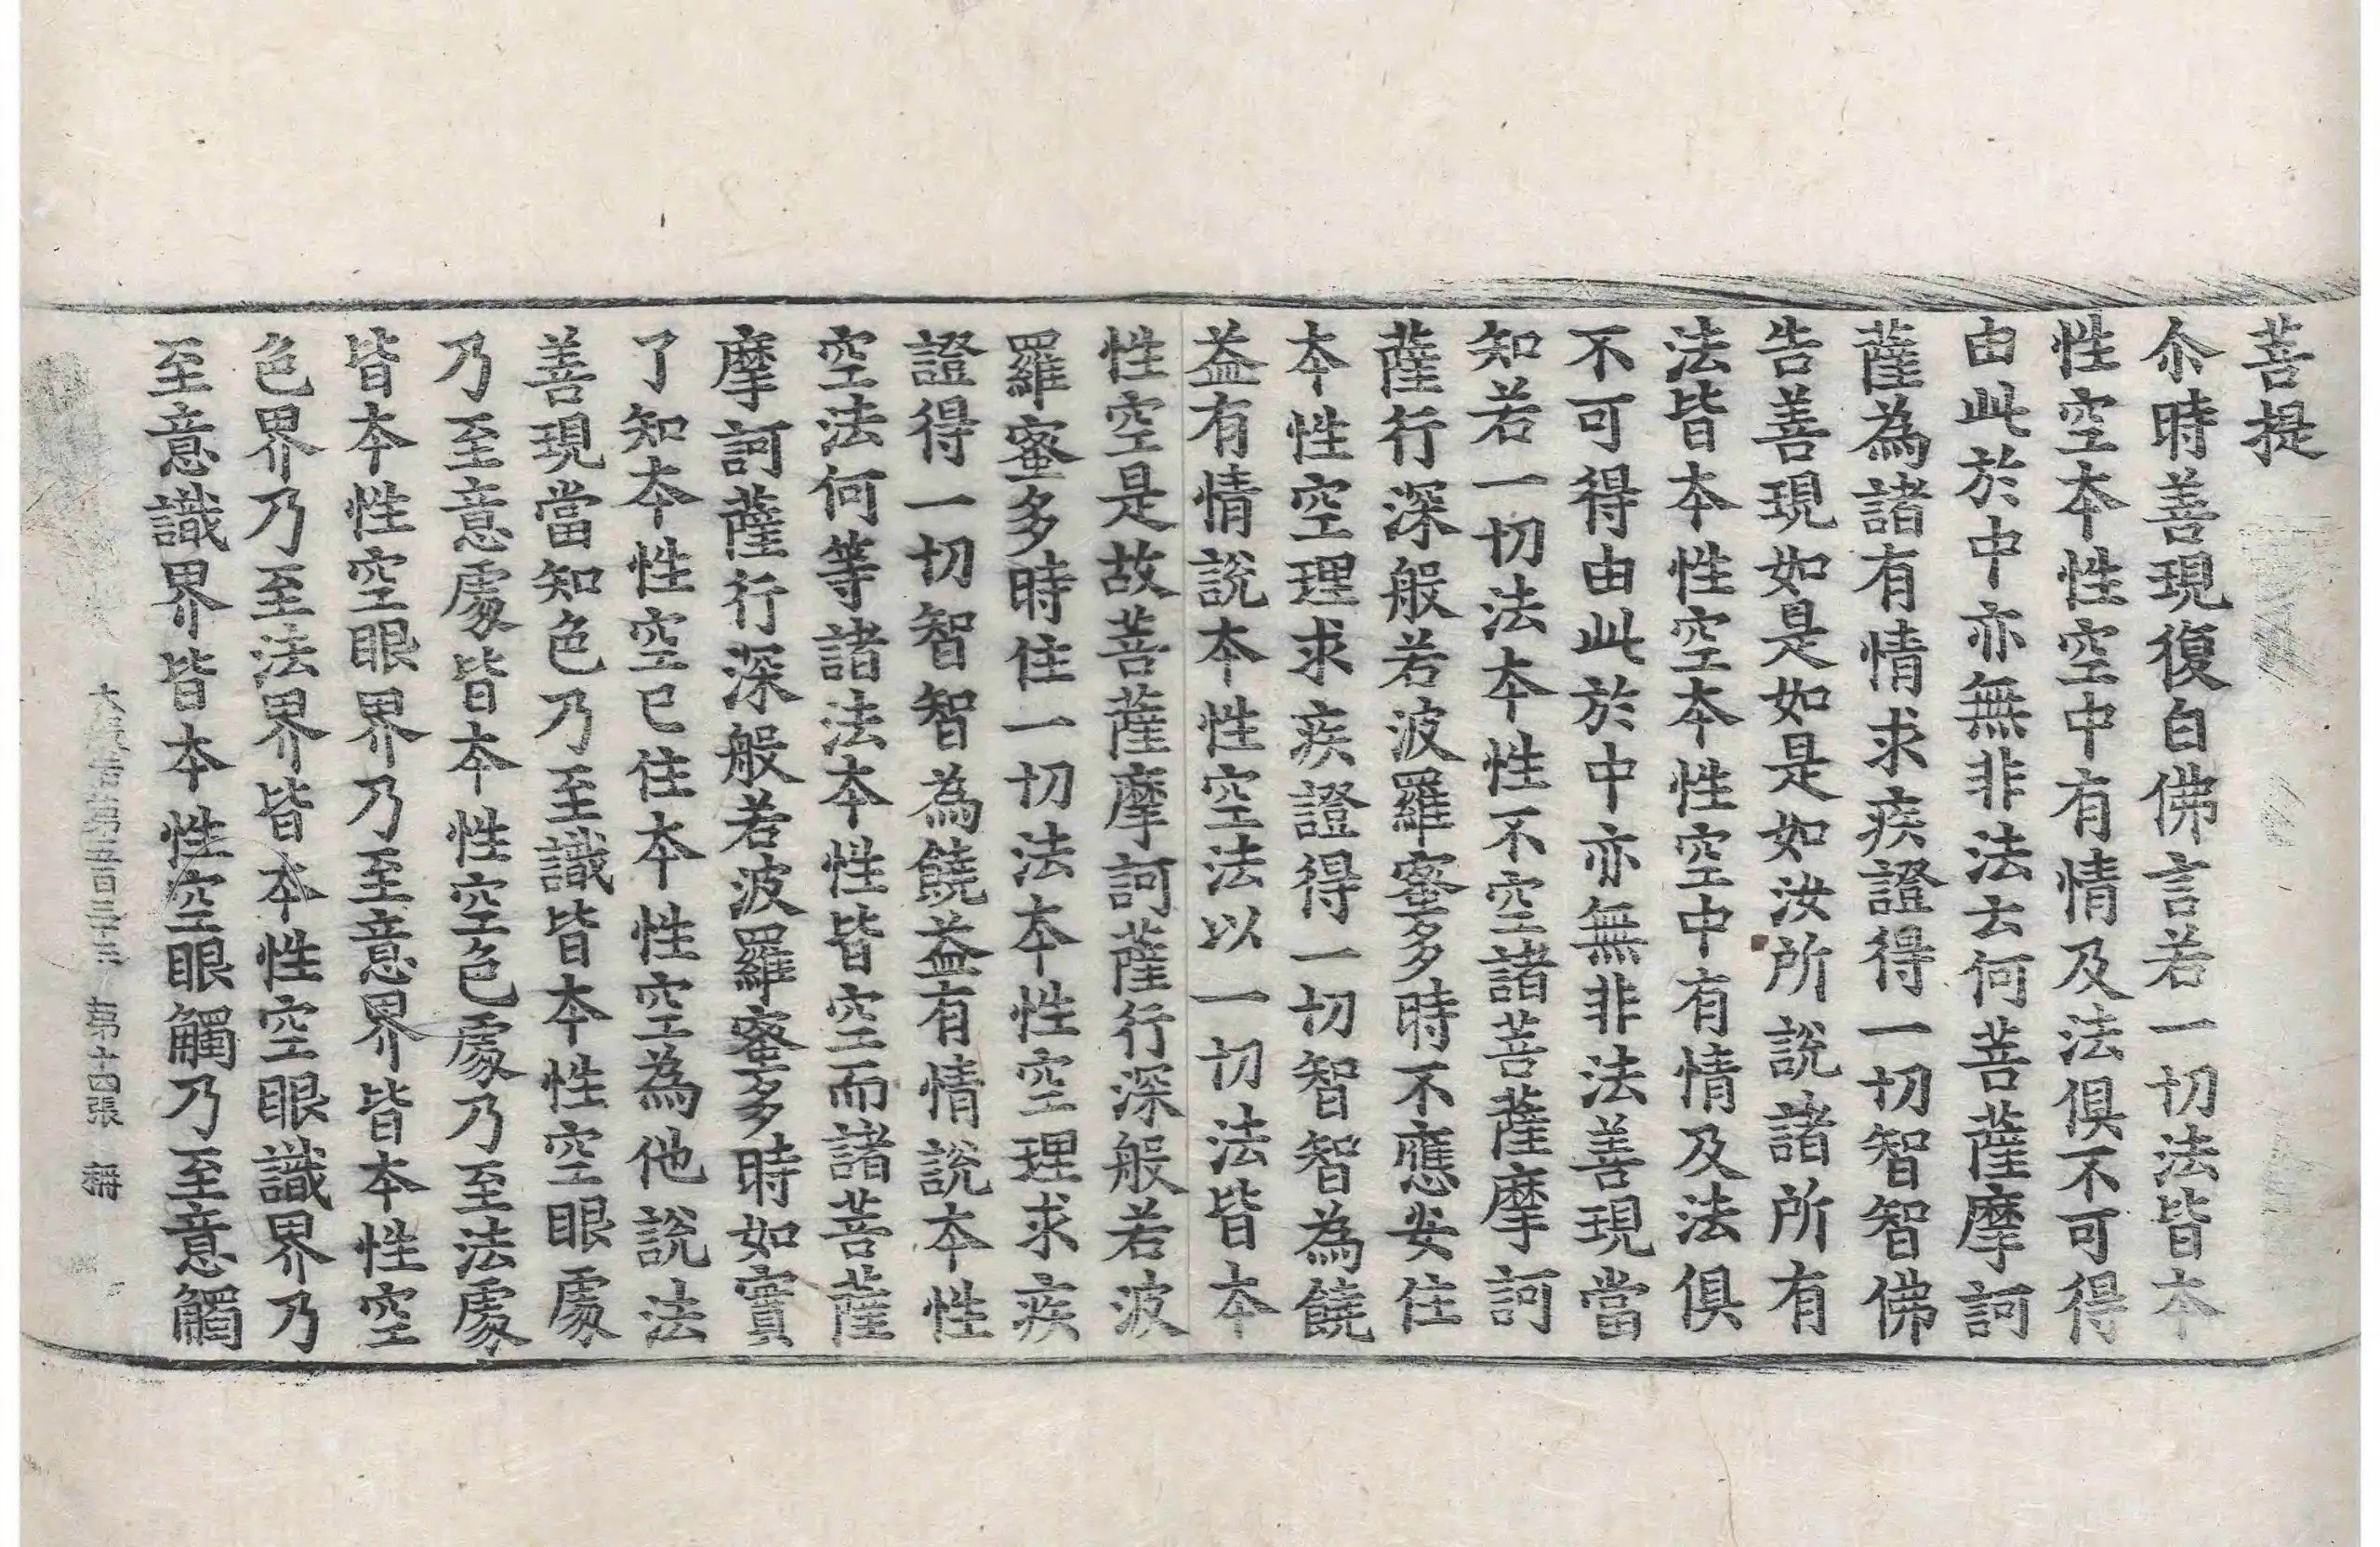 菩提
尒時善現復白佛言若一切法皆本
性空本性空中有情及法俱不可得
由此於中亦無非法云何菩薩摩訶
薩為諸有情求疾證得一切智智佛
告善現如是如是如汝所說諸所有
法皆本性空本性空中有情及法俱
不可得由此於中亦無非法善現當
知若一切法本性不空諸菩薩摩訶
薩行深般若波羅蜜多時不應安住
本性空理求疾證得一切智智為饒
益有情說本性空法以一切法皆本
性空是故菩薩摩訶薩行深般若波
羅蜜多時住一切法本性空理求疾
證得一切智智為饒益有情說本性
空法何等諸法本性皆空而諸菩薩
摩訶薩行深般若波羅蜜多時如實
了知本性空已住本性空為他說法
善現當知色乃至識皆本性空眼處
乃至意處皆本性空色處乃至法處
皆本性空眼界乃至意界皆本性空
色界乃至法界皆本性空眼識界乃
至意識界皆本性空眼觸乃至意觸
大般若第五百三十三 第十四張